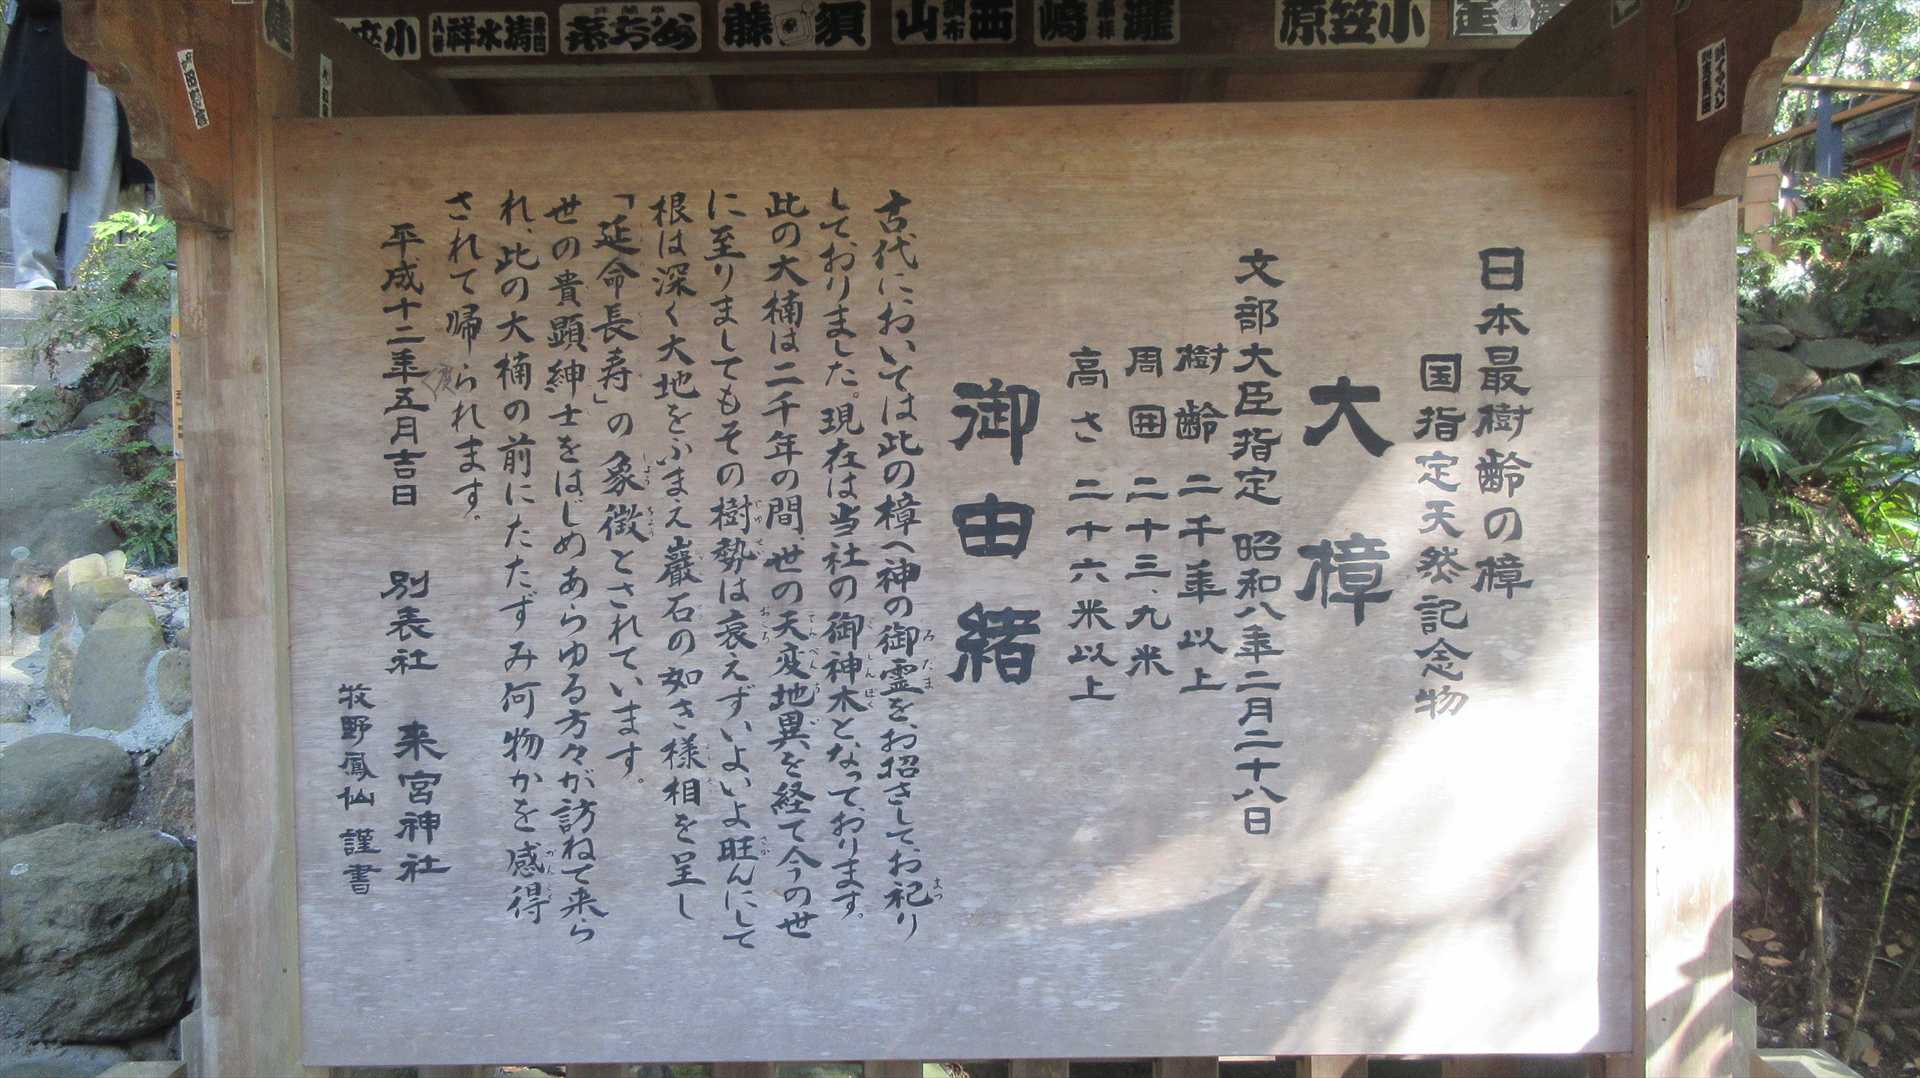 日本最樹齢の樟
国指定天然記念物
大樟
文部大臣指定 昭和八年二月二十八日
樹齢 二千年以上
周囲 二十三、九米
高さ 二十六米以上
御由緒
古代においては此の樟へ神の御霊を、お招きしてお祀り
しておりました。現在は当社の御神木となっております。
此の大楠は二千年の間、世の天変地異を経て今の世
に至りましてもその樹勢は衰えずいよいよ旺んにして
根は深く大地をふまえ巌石の如き様相を呈し
「延命長寿」の象徴とされています。
世の貴顕紳士をはじめあらゆる方々が訪ねて来ら
れ、此の大楠の前にたたずみ何物かを感得
されて帰られます。
平成十二年五月吉日
別表社 来宮神社
牧野鳳仙 謹書
小笠原
瀧嶋
西山
須藤
清水祥